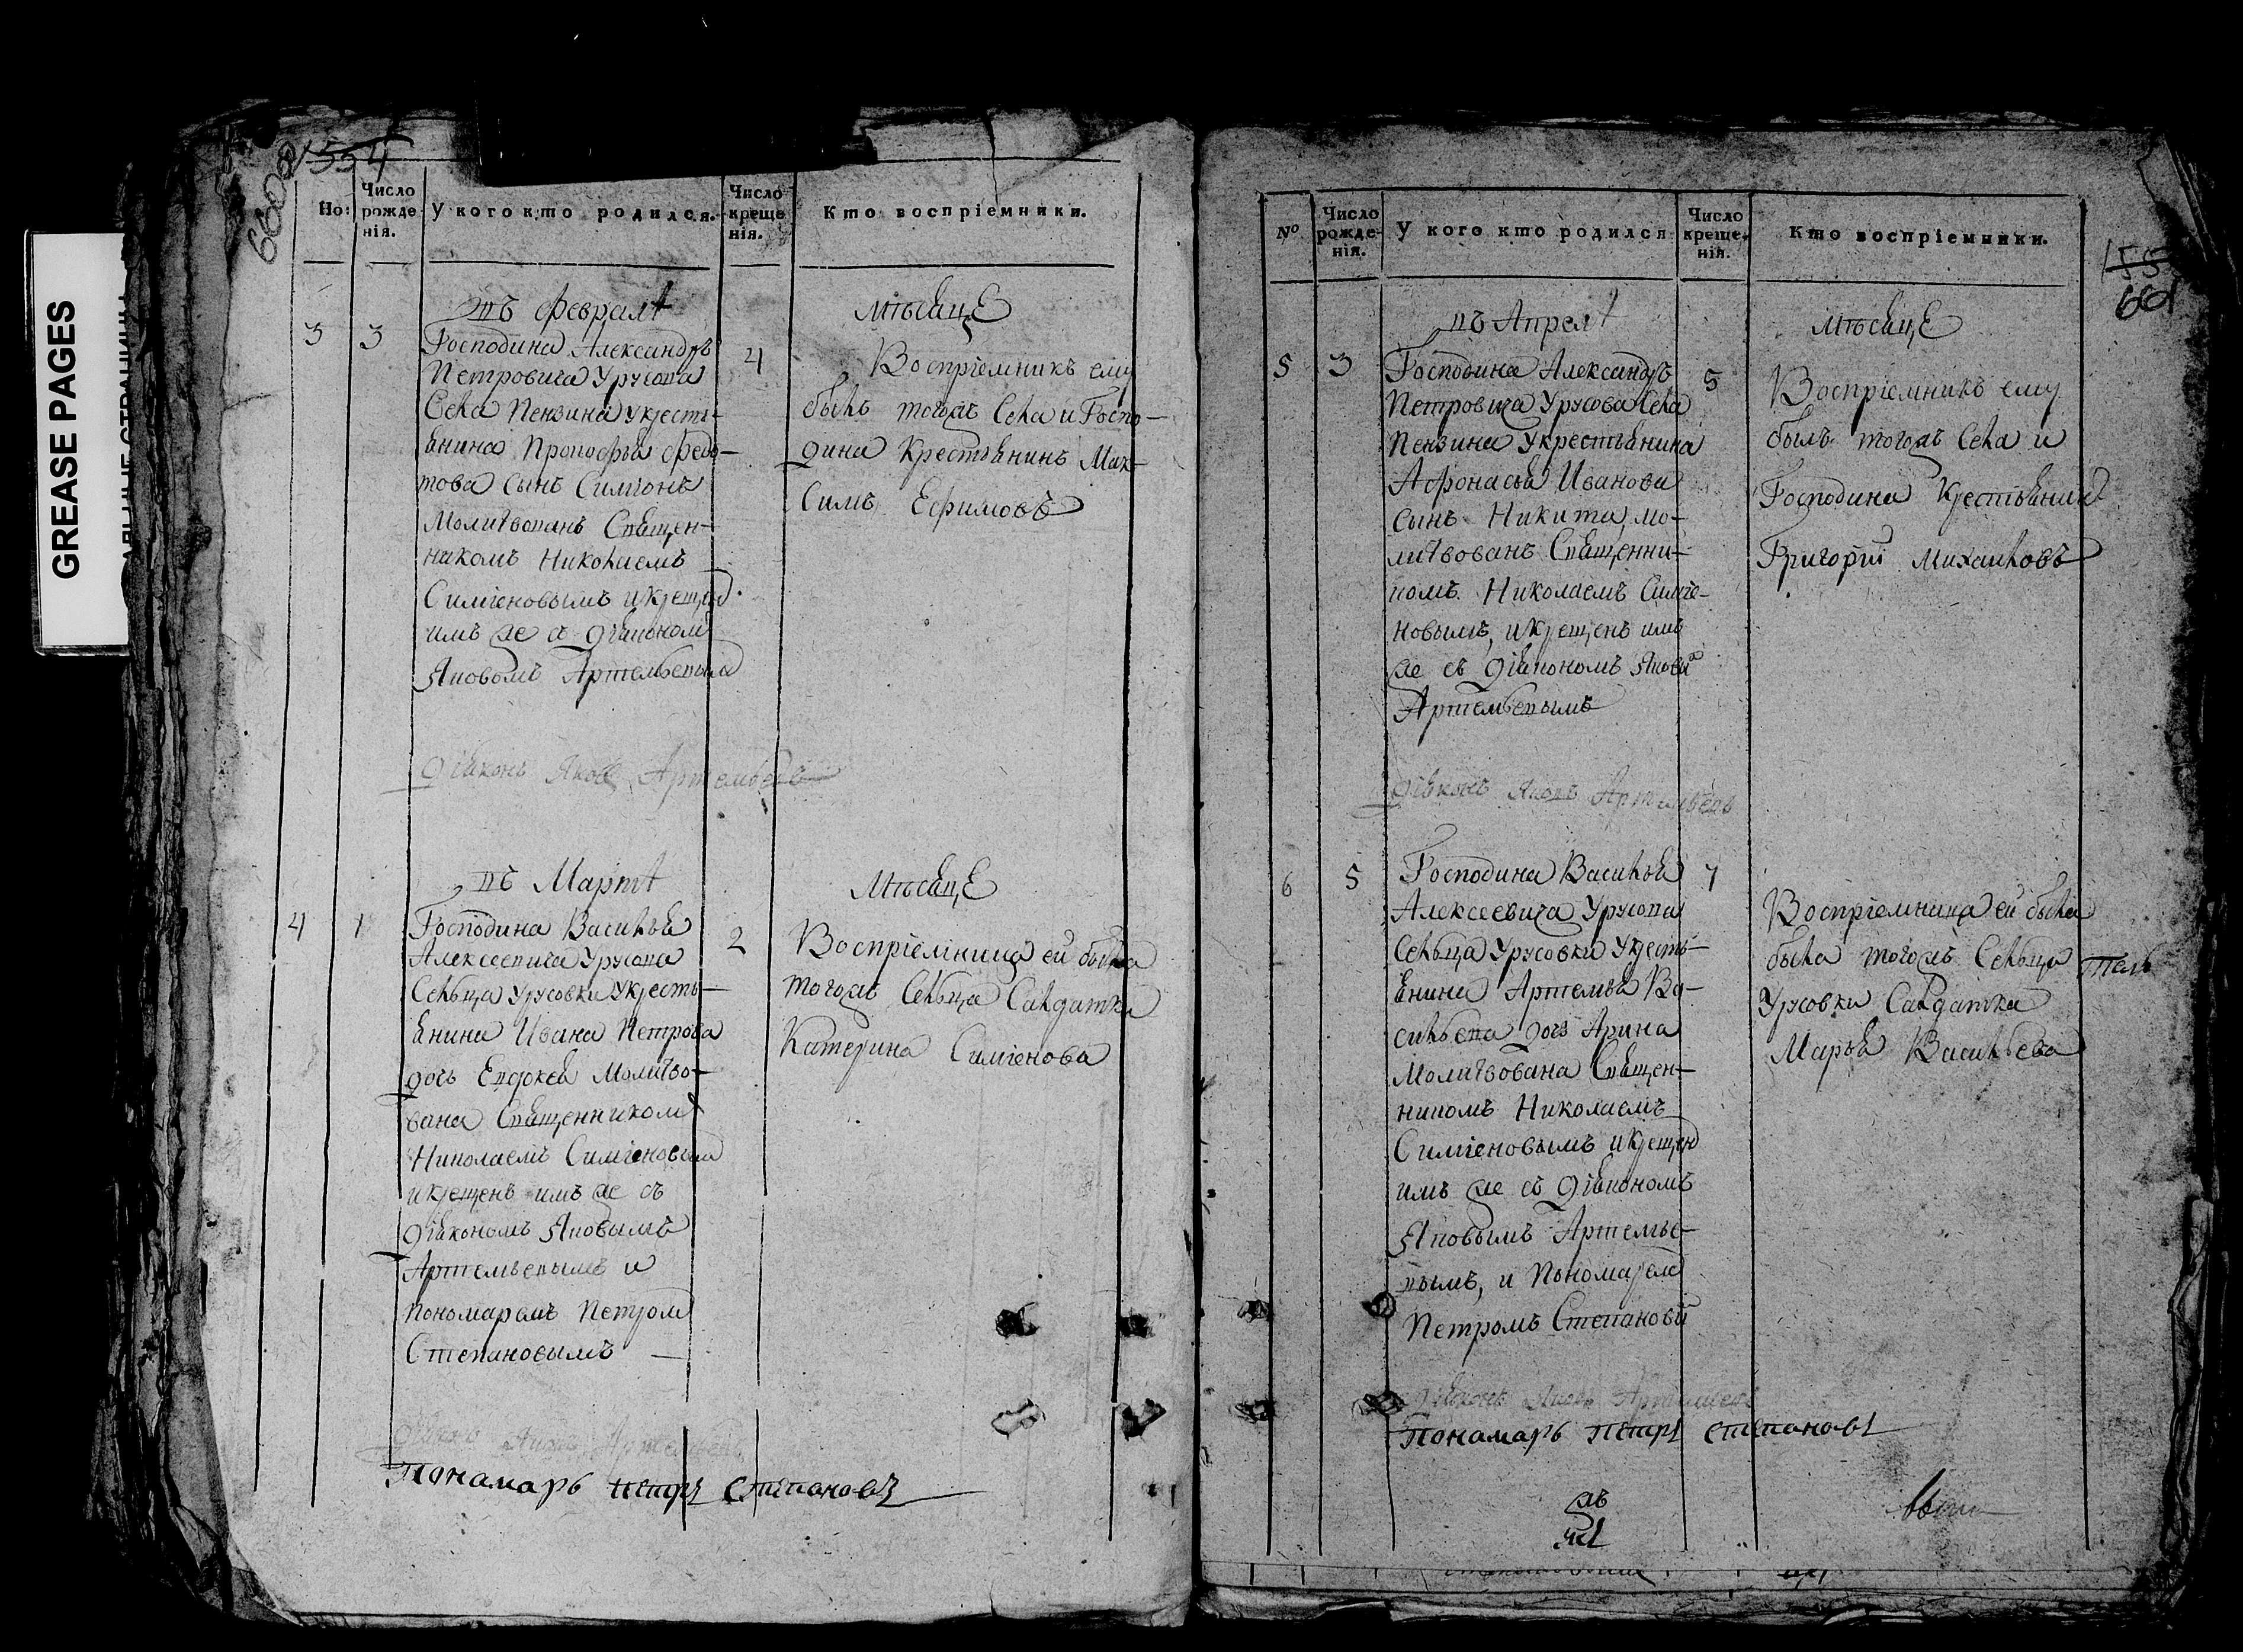 GREASE PAGES
6608
1554
Но:
Число рожденія.
У кого кто родился.
Число крещенія.
Кто воспріемники.
въ Февралѣ
мѣсяцѣ
3
3
4
Господина Александръ
Петровича Урусова
Села Пензина укресть-
янина Прокофья Федо-
това сынъ Симіонъ
Молитвованъ Священ-
никомъ Николаемъ
Симіеновымъ и крещен
имъ же съ діакономъ
Яковомъ Артемьевым
Воспріемникъ ему
былъ тогожъ Села и Госпо-
дина Крестьянинъ Мак-
симъ Ефимовъ
Діяконъ Яковъ Артемьевъ
въ Мартѣ
мѣсяцѣ
4
1
2
Господина Василья
Алексеевича Урусова
Сельца Урусовки укресть-
янина Ивана Петрова
дочь Евдокея Молитво-
вана Священником
Николаемъ Симіеновым
и крещенъ имъ же съ
діякономъ Яковымъ
Артемьевымъ и
пономаремъ Петром
Степановымъ
Воспріемница ей была
тогожъ Сельца Салдатка
Катерина Симіенова
Діяконъ Яковъ Артемьевъ
Понамарь петръ степановъ
155
661
№
Число рожденія.
У кого кто родился
Число крещенія.
Кто воспріемники.
въ Апрелѣ
мѣсяцѣ
5
3
5
Господина Александръ
Петровича Урусова Села
Пензина Укрестьянина
Афонасья Иванова
сынъ Никита, мо-
литвованъ Священни-
комъ Николаемъ Симіе-
новымъ, и крещенъ имъ
же съ діякономъ Яковы
Артемьевымъ
Воспріемникъ ему
былъ тогожъ Села и
Господина Крестьянин
Григорій Михаиловъ
Діяконъ Яковъ Артемьевъ
6
5
7
Господина Василья
Алексеевича Урусова
Сельца Урусовки Укресть-
янина Артемья Ва-
сильева дочь Арина
Молитвована Священ-
никомъ Николаемъ
Симіеновымъ и крещен
имъ же съ діякономъ
Яковымъ Артемье-
вымъ, и Пономарем
Петромъ Степановы
Воспріемница ей была
была тогожъ Сельца
Урусовки Салдатка
Марья Васильева
Діяконъ Яковъ Артемьевъ
Понамарь петръ степановъ